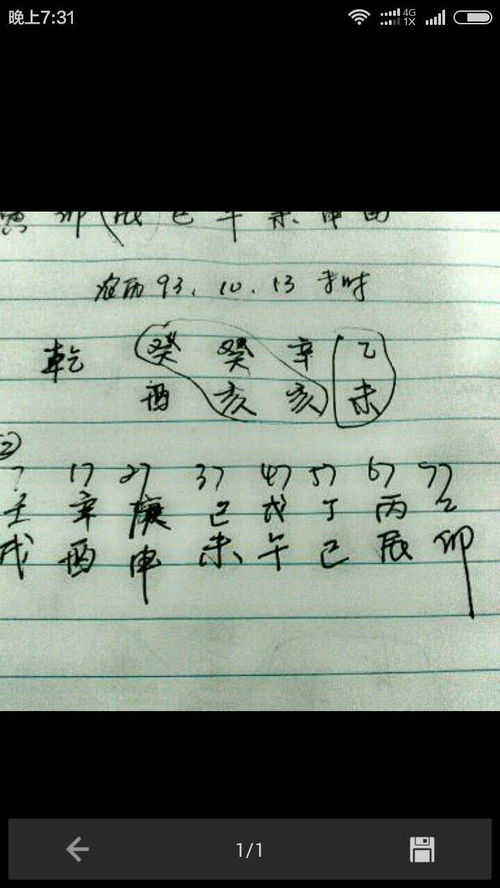 晚上7:31
4G
1X
卯 戌 巳 午 未 申 酉
农历 93. 10. 13 未时
乾 癸 癸 辛 乙
酉 亥 亥 未
②
7 17 27 37 47 57 67 77
壬 辛 庚 己 戊 丁 丙 乙
戌 酉 申 未 午 巳 辰 卯
1/1